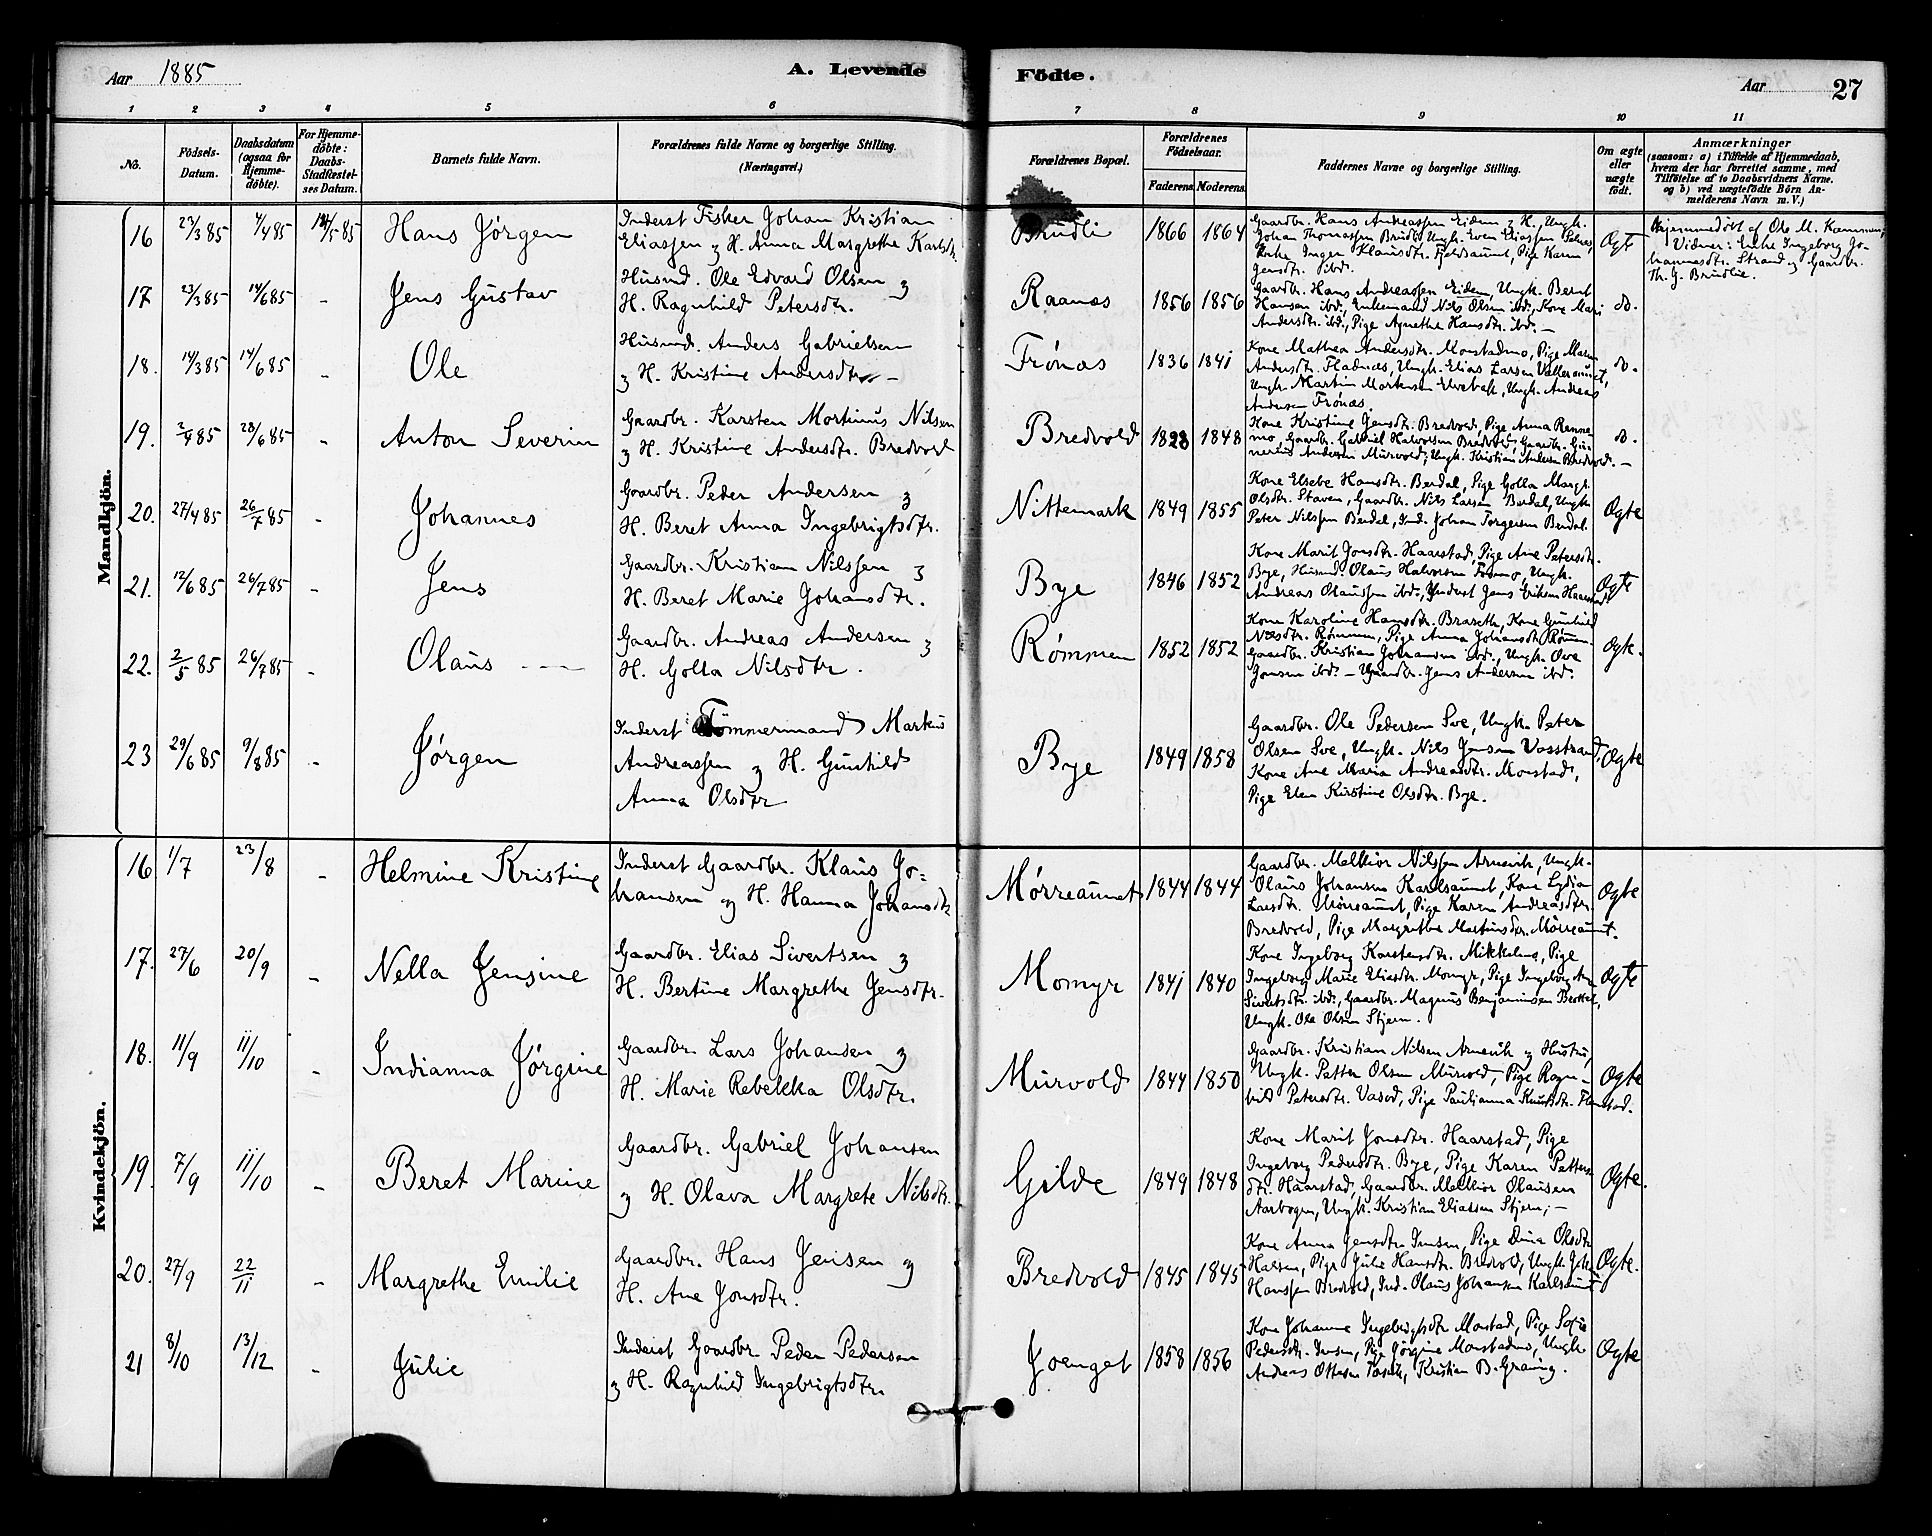 Aar 1885
A. Levende
Födte.
Aar
27
1 2 3 4 5 6 7 8 9 10 11
No.
Födsels-Datum.
Daabsdatum (ogsaa for Hjemme-döbte).
For Hjemme-döbte: Daabs-Stadfæstel-ses Datum.
Barnets fulde Navn.
Forældrenes fulde Navne og borgerlige Stilling. (Næringsvei.)
Forældrenes Bopæl.
Forældrenes Födselsaar.
Faderens Moderens
Faddernes Navne og borgerlige Stilling.
Om ægte eller uægte födt.
Anmærkninger
(saasom: a) i Tilfælde af Hjemmedaab,
hvem der har forrettet samme, med
Tilföielse af to Daabsvidners Navne.
og b) ved uægtefödte Börn An-
melderens Navn m. V.)
Mandkjön.
16 23/3 85 /4 85 14/5 85 Hans Jørgen
Inderst Fisker Johan Kristian
Eliassen og H. Anna Margrethe Karlsdtr.
Brudli 1866 1864
Gaardbr. Hans Andreassen Eidem og H., Ungk.
Johan Thomassen Brudli, Ungk. Even Eliassen
Inger Klausdtr. Fjeldaunet, Pige Karen
Jensdtr. ibd.
Ægte
Hjemmedöbt af Ole M. Kammen,
Vidner: Enke Ingeborg Jo-
hannesdtr. Strand og Gaardbr.
Th. J. Brudlie.
17 23/3 85 14/6 85 - Jens Gustav
Husmd. Ole Edvard Olsen og
H. Ragnhild Petersdtr.
Raanæs 1856 1856
Gaardbr. Hans Andreassen Eidem, Ungk. Bernt
Hansen ibd., Enkemand Nils Olsen ibd., Kone Mari
Andersdtr. ibd., Pige Agnethe Hansdtr. ibd. -
do.
18. 14/3 85 14/6 85 - Ole
Husmd. Anders Gabrielsen
og H. Kristine Andersdtr. -
Frønæs 1836 1841
Kone Mathea Andersdtr. Monstadmo, Pige Maren
Andersdtr. Fladnæs, Ungk. Elias Larsen Valleraunet,
Ungk. Martin Mortensen Elvebak, Ungk. Andreas
Andersen Frønæs.
do.
19. 2/4 85 28/6 85 - Anton Severin
Gaardbr. Karsten Mortinus Nilsen
og H. Kristine Andersdtr. Bredvold
Bredvold 1828 1848
Kone Kristine Jensdtr. Bredvold, Pige Anna Renne-
mo, Gaardbr. Gabriel Halvorsen Bredvold, Gaardbr. Gun-
nerius Andersen Murvold, Ungk. Kristian Andersen Bredvold. -
do.
20. 27/4 85 26/7 85 - Johannes
Gaardbr. Peder Andersen og
H. Beret Anna Ingebrigtsdtr.
Nittemark 1849 1855
Kone Elsebe Hansdtr. Berdal, Pige Golla Margr.
Olsdtr. Staven, Gaardbr. Nils Larsen Berdal, Ungk.
Peter Nilssen Berdal, Ind. Johan Torgersen Berdal.
Ægte
21. 12/6 85 26/7 85 - Jens
Gaardbr. Kristian Nilssen og
H. Beret Marie Johansdtr.
Bye 1846 1852
Kone Marit Jonsdtr. Haarstad, Pige Ane Petersdtr.
Bye, Husmd. Olaus Halvorsen Fosmo, Ungk.
Andreas Olaussen ibd., Inderst Jens Eriksen Haarstad
Ægte
22. 2/5 85 26/7 85 - Olaus
Gaardbr. Andreas Andersen og
H. Golla Nilsdtr.
Rømmen 1852 1852
Kone Karoline Hansdtr. Braseth, Kone Gunhild
Nilsdtr. Rømmen, Pige Anna Johansdtr. Rømmen
Gaardbr. Kristian Johansen ibd., Ungk. Ove
Jonsen ibd. - Gaardbr. Jens Andersen ibd.
Ægte.
23 29/6 85 9/8 85 - Jørgen
Inderst Tømmermand Markus
Andreassen og H. Gunhild
Anna Olsdtr
Bye 1849 1858
Gaardbr. Ole Pedersen Sve, Ungk. Peter
Olsen Sve, Ungk. Nils Jensen Vasstrand,
Kone Ane Maria Andreasdtr. Monstad,
Pige Elen Kirstine Olsdtr. Bye.
Ægte
Kvindekjön.
16 1/7 23/8 - Helmine Kristine
Inderst Gaardbr. Klaus Jo=
hansen og H. Hanna Johansdtr
Mørreaunet 1844 1844
Gaardbr. Melkior Nilssen Arnevik, Ungk.
Olaus Johansen Karlsaunet, Kone Lydia
Larsdtr. Mørreaunet, Pige Karen Andreasdtr.
Bredvold, Pige Margrethe Martinsdtr. Mørreaunet.
Ægte
17. 27/6 20/9 - Nella Jensine
Gaardbr. Elias Sivertsen og
H. Bertine Margrethe Jensdtr.
Momyr 1841 1840
Kone Ingeborg Karstensdtr. Mikkelmo, Pige
Ingeborg Marie Eliasdtr. Momyr, Pige Ingeborg Ane
Sivertsdtr. ibd., Gaardbr. Magnus Benjaminsen
Ungk. Ole Olsen Stjern.
Ægte
18. 11/9 11/10 - Indianna Jørgine
Gaardbr. Lars Johansen og
H. Marie Rebekka Olsdtr.
Murvold 1844 1850
Gaardbr. Kristian Nilsen Arnevik og Hustru,
Ungk. Petter Olsen Murvold, Pige Ragn-
hild Petersdtr. Vasød, Pige Paulianna Knutsdtr.
Ægte
19. 7/9 11/10 - Beret Marine
Gaardbr. Gabriel Johansen
og H. Olava Margrete Nilsdtr.
Gilde 1849 1848
Kone Marit Jonsdtr. Haarstad, Pige
Ingeborg Pedersdtr. Bye, Pige Karen Petters
dtr. Haarstad, Gaardbr. Melkior Olausen
Aarbogen, Ungk. Kristian Eliassen Stjern, -
Ægte.
20. 27/9 22/11 - Margrethe Emilie
Gaardbr. Hans Jensen og
H. Ane Jonsdtr.
Bredvold 1845 1845
Kone Anna Jensdtr. Imsen, Pige Dina Olsdtr
Halsen, Pige Julie Hansdtr. Bredvold, Ungk. Joh.
Hanssen Bredvold, Ind. Olaus Johansen Karlsaunet
Ægte.
21 8/10 13/12 - Julie
Inderst Gaardbr Peder Pedersen
og H. Ragnhild Ingebrigtsdtr.
Joenget 1858 1856
Kone Johanna Ingebrigtsdtr Monstad, Pige Sofie
Pedersdtr. Imsen, Pige Jørgine Monstadmo, Ungk
Andreas Ottesen Kristian B. Græning.
Ægte